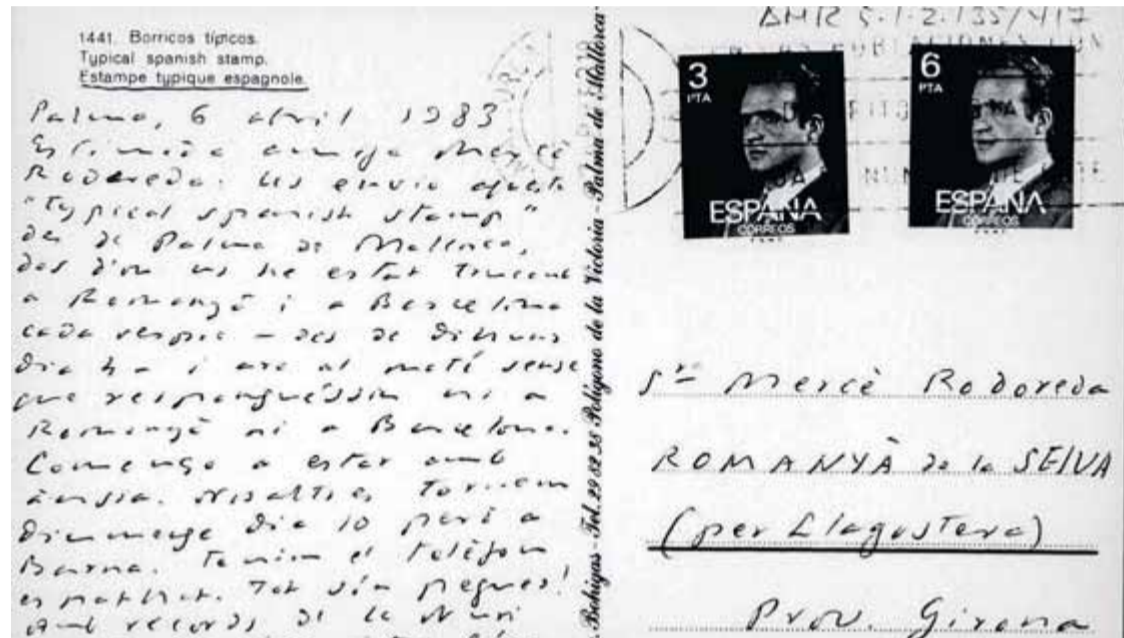 1441. Borricos típicos.
Typical spanish stamp.
Estampe typique espagnole.
Palma, 6 abril 1983
Estimada amiga Mercè
Rodoreda: us envio aquesta
"typical spanish stamp"
des de Palma de Mallorca,
des d'on us he estat trucant
a Romanyà i a Barcelona
cada vespre - des de dilluns
dia 4 - i ara al matí sense
que responguéssiu ni a
Romanyà ni a Barcelona.
Començo a estar amb
ànsia. Nosaltres tornem
diumenge dia 10 però a
Barna. Tenim el telèfon
espatllat. Tot són pegues!
Amb records de la Nuri
Bohigas - Tel. 29 62 35 Polígono de la Victoria - Palma de Mallorca
AMR 5.1.2.135/417
3
PTA
ESPAÑA
CORREOS
6
PTA
ESPAÑA
CORREOS
Sra Mercè Rodoreda
ROMANYÀ de la SELVA
(per Llagostera)
Prov. Girona